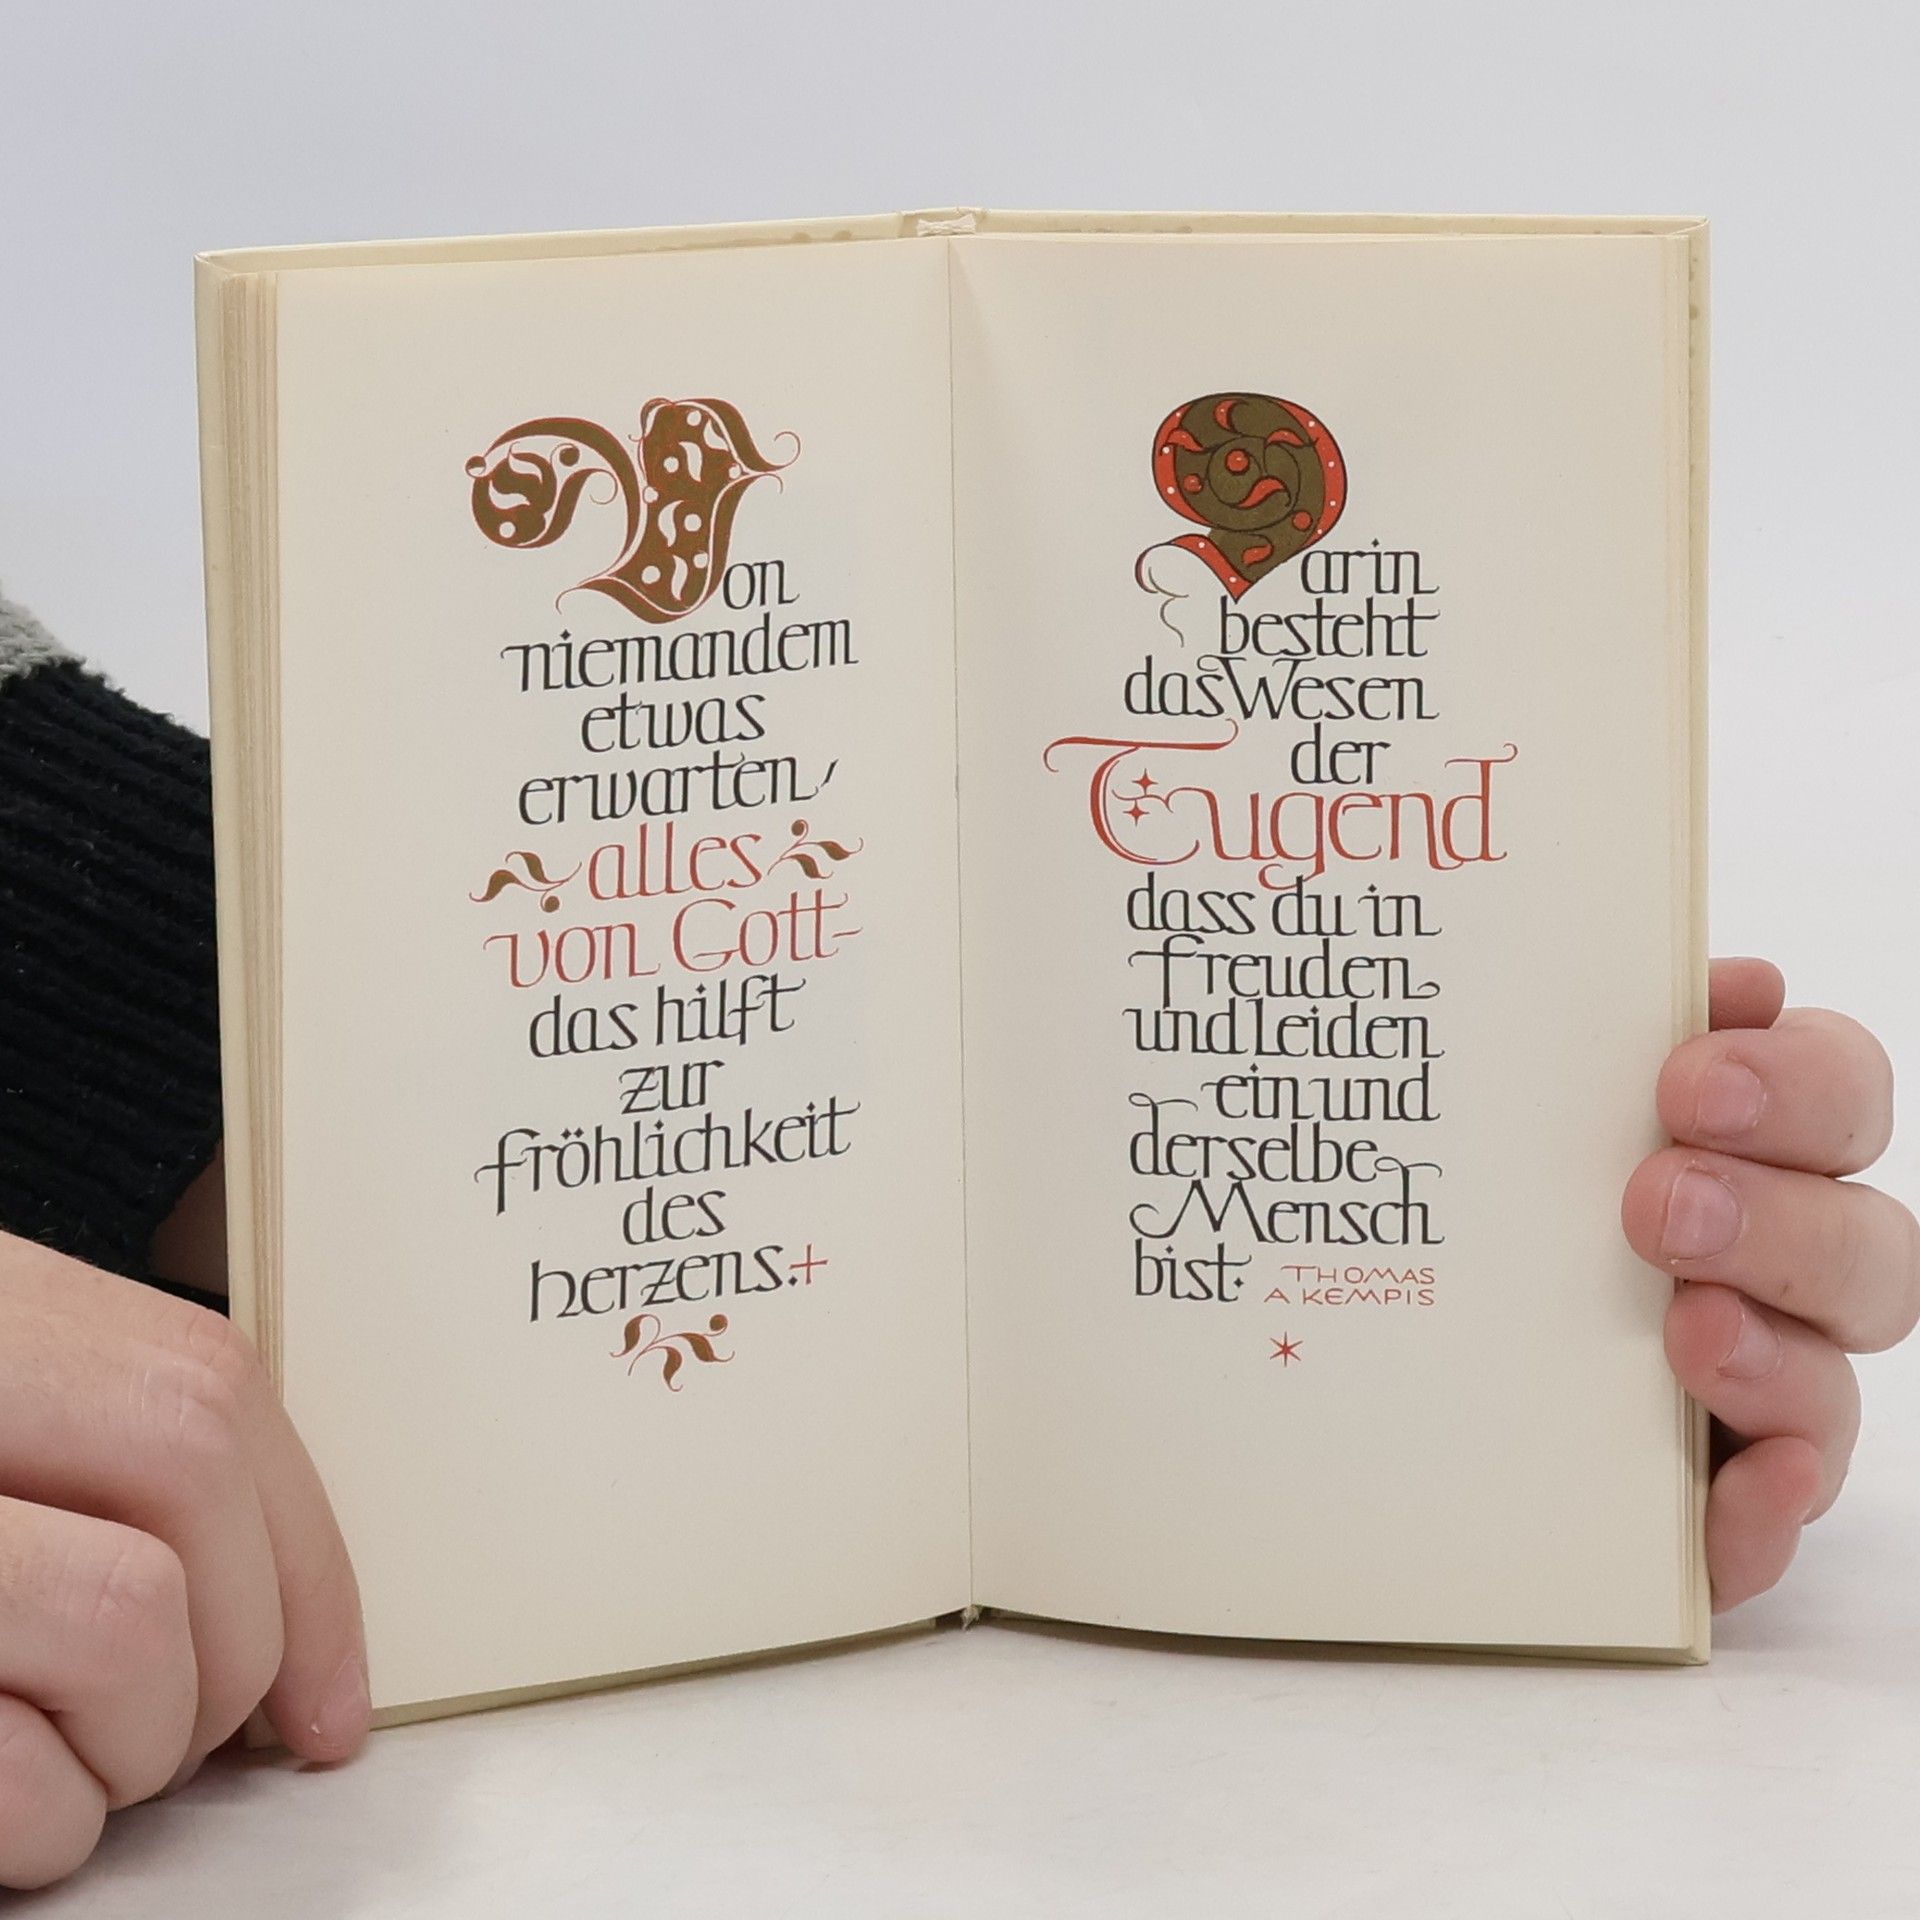 Von
niemandem
etwas
erwarten,
alles
von Gott-
das hilft
zur
fröhlichkeit
des
herzens.+
Darin
besteht
das Wesen
der
Tugend
dass du in
freuden
und leiden
ein und
derselbe
Mensch
bist.
THOMAS
A KEMPIS